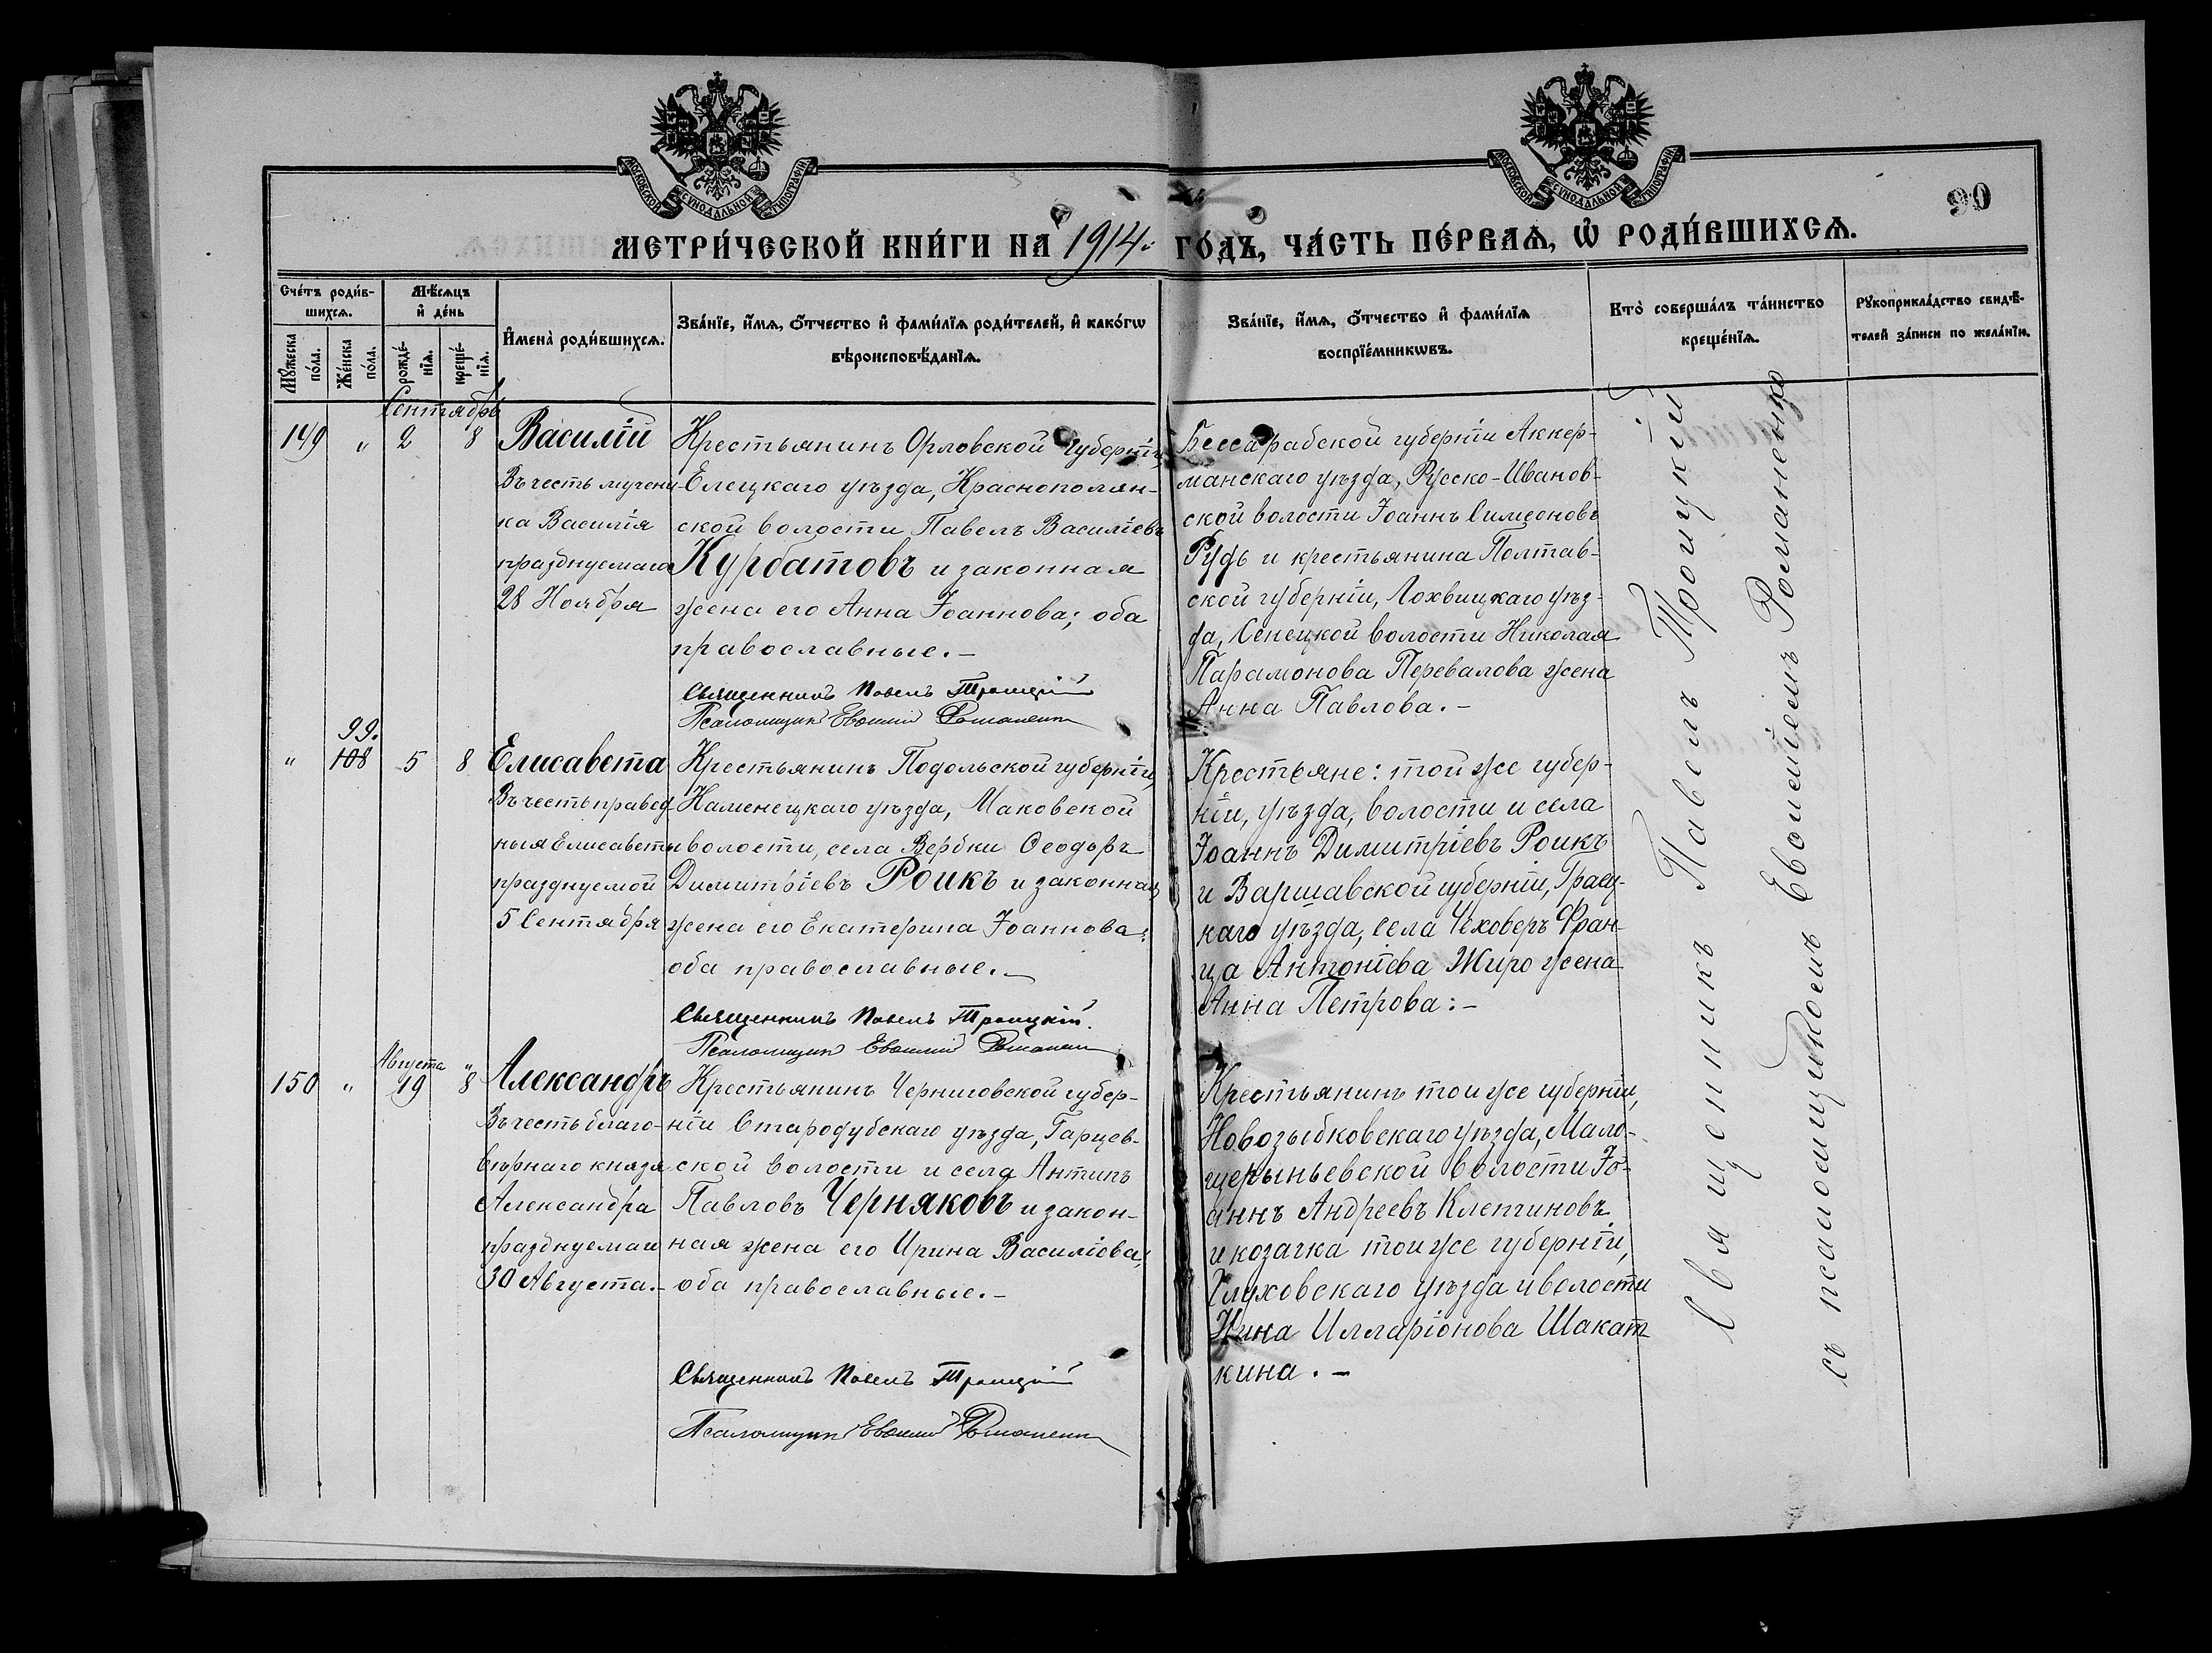 МОСКОВСКОЙ СѴНОДАЛЬНОЙ ТИПОГРАФІИ
МОСКОВСКОЙ СѴНОДАЛЬНОЙ ТИПОГРАФІИ
90
МЕТРИ́ЧЕСКОЙ КНИ́ГИ НА 1914 ГО́ДЪ, ЧА́СТЬ ПЕ́РВАЯ, Ѡ РОДИ́ВШИХСЯ.
Сче́тъ роди́в-
шихся.
Му́жеска по́ла.
Же́нска по́ла.
Мѣ́сяцъ
и де́нь
рожде́-
нія.
креще́-
нія.
Имена̀ роди́вшихся.
Зва́нїе, и́мя, о́тчество и фами́лїя роди́телей, и како́гѡ
вѣроисповѣ́данїя.
Зва́нїе, и́мя, о́тчество и фами́лїя
воспрїе́мникѡвъ.
Кто̀ соверша́лъ та́инство
креще́нїя.
Рꙋкоприкла́дство свидѣ́-
телей за́писи по жела́нїю.
Сентябрь
149 " 2 8
Василій
Въ честь мучени-
ка Василія
празднуемаго
28 Ноября
Крестьянинъ Орловской губерніи,
Елецкаго уѣзда, Краснополян-
ской волости Павелъ Василіевъ
Курбатовъ и законная
жена его Анна Іоаннова; оба
православные.-
Священникъ Павелъ Троицкій
Псаломщикъ Евфимій Романенко
Бессарабской губерніи Аккер-
манскаго уѣзда, Русско-Иванов-
ской волости Іоаннъ Симеоновъ
Рудь и крестьянина Полтав-
ской губерніи, Лохвицкаго уѣз-
да, Сенецкой волости Николая
Парамонова Перевалова жена
Анна Павлова.-
99.
" 108 5 8
Елисавета
Въ честь правед-
ныя Елисаветы
празднуемой
5 Сентября
Крестьянинъ Подольской губерніи,
Каменецкаго уѣзда, Маковской
волости, села Вербки Ѳеодоръ
Димитріевъ Роикъ и законная
жена его Екатерина Іоаннова;
оба православные.-
Священникъ Павелъ Троицкій.
Псаломщикъ Евфимій Романенко
Крестьяне: той же губер-
ніи, уѣзда, волости и села
Іоаннъ Димитріевъ Роикъ
и Варшавской губерніи, Граец-
каго уѣзда, села Чеховеръ Фран-
ца Антоніева Жиро жена
Анна Петрова:-
Августа "
150 " 19 8
Александръ
Въ честь благо-
вѣрнаго князя
Александра
празднуемаго
30 Августа.-
Крестьянинъ Черниговской губер-
ніи Стародубскаго уѣзда, Гарцев-
ской волости и села Антипъ
Павловъ Черняковъ и закон-
ная жена его Ирина Василіева;
оба православные.-
Священникъ Павелъ Троицкій
Псаломщикъ Евфимій Романенко
Крестьянинъ той же губерніи,
Новозыбковскаго уѣзда, Мало-
щерыньевской волости Іо-
аннъ Андреевъ Клепчиновъ
и козачка той же губерніи,
Глуховскаго уѣзда и волости
Нина Илларіонова Шакат
кина.-
Священникъ Павелъ Троицкій
съ псаломщикомъ Евфиміемъ Романенко